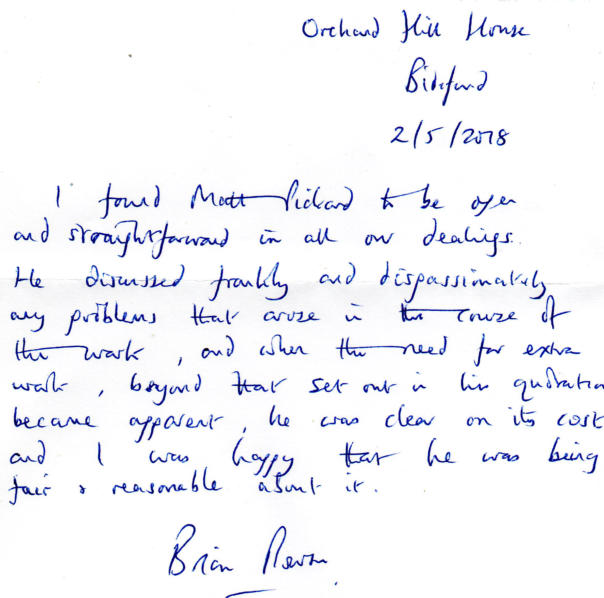 Orchard Hill House
Bideford
2/5/2018
I found Matt Pickard to be open
and straightforward in all our dealings.
He discussed frankly and dispassionately
any problems that arose in the course of
the work, and when the need for extra
work, beyond that set out in his quotation
became apparent, he was clear on its cost
and I was happy that he was being
fair & reasonable about it.
Brian